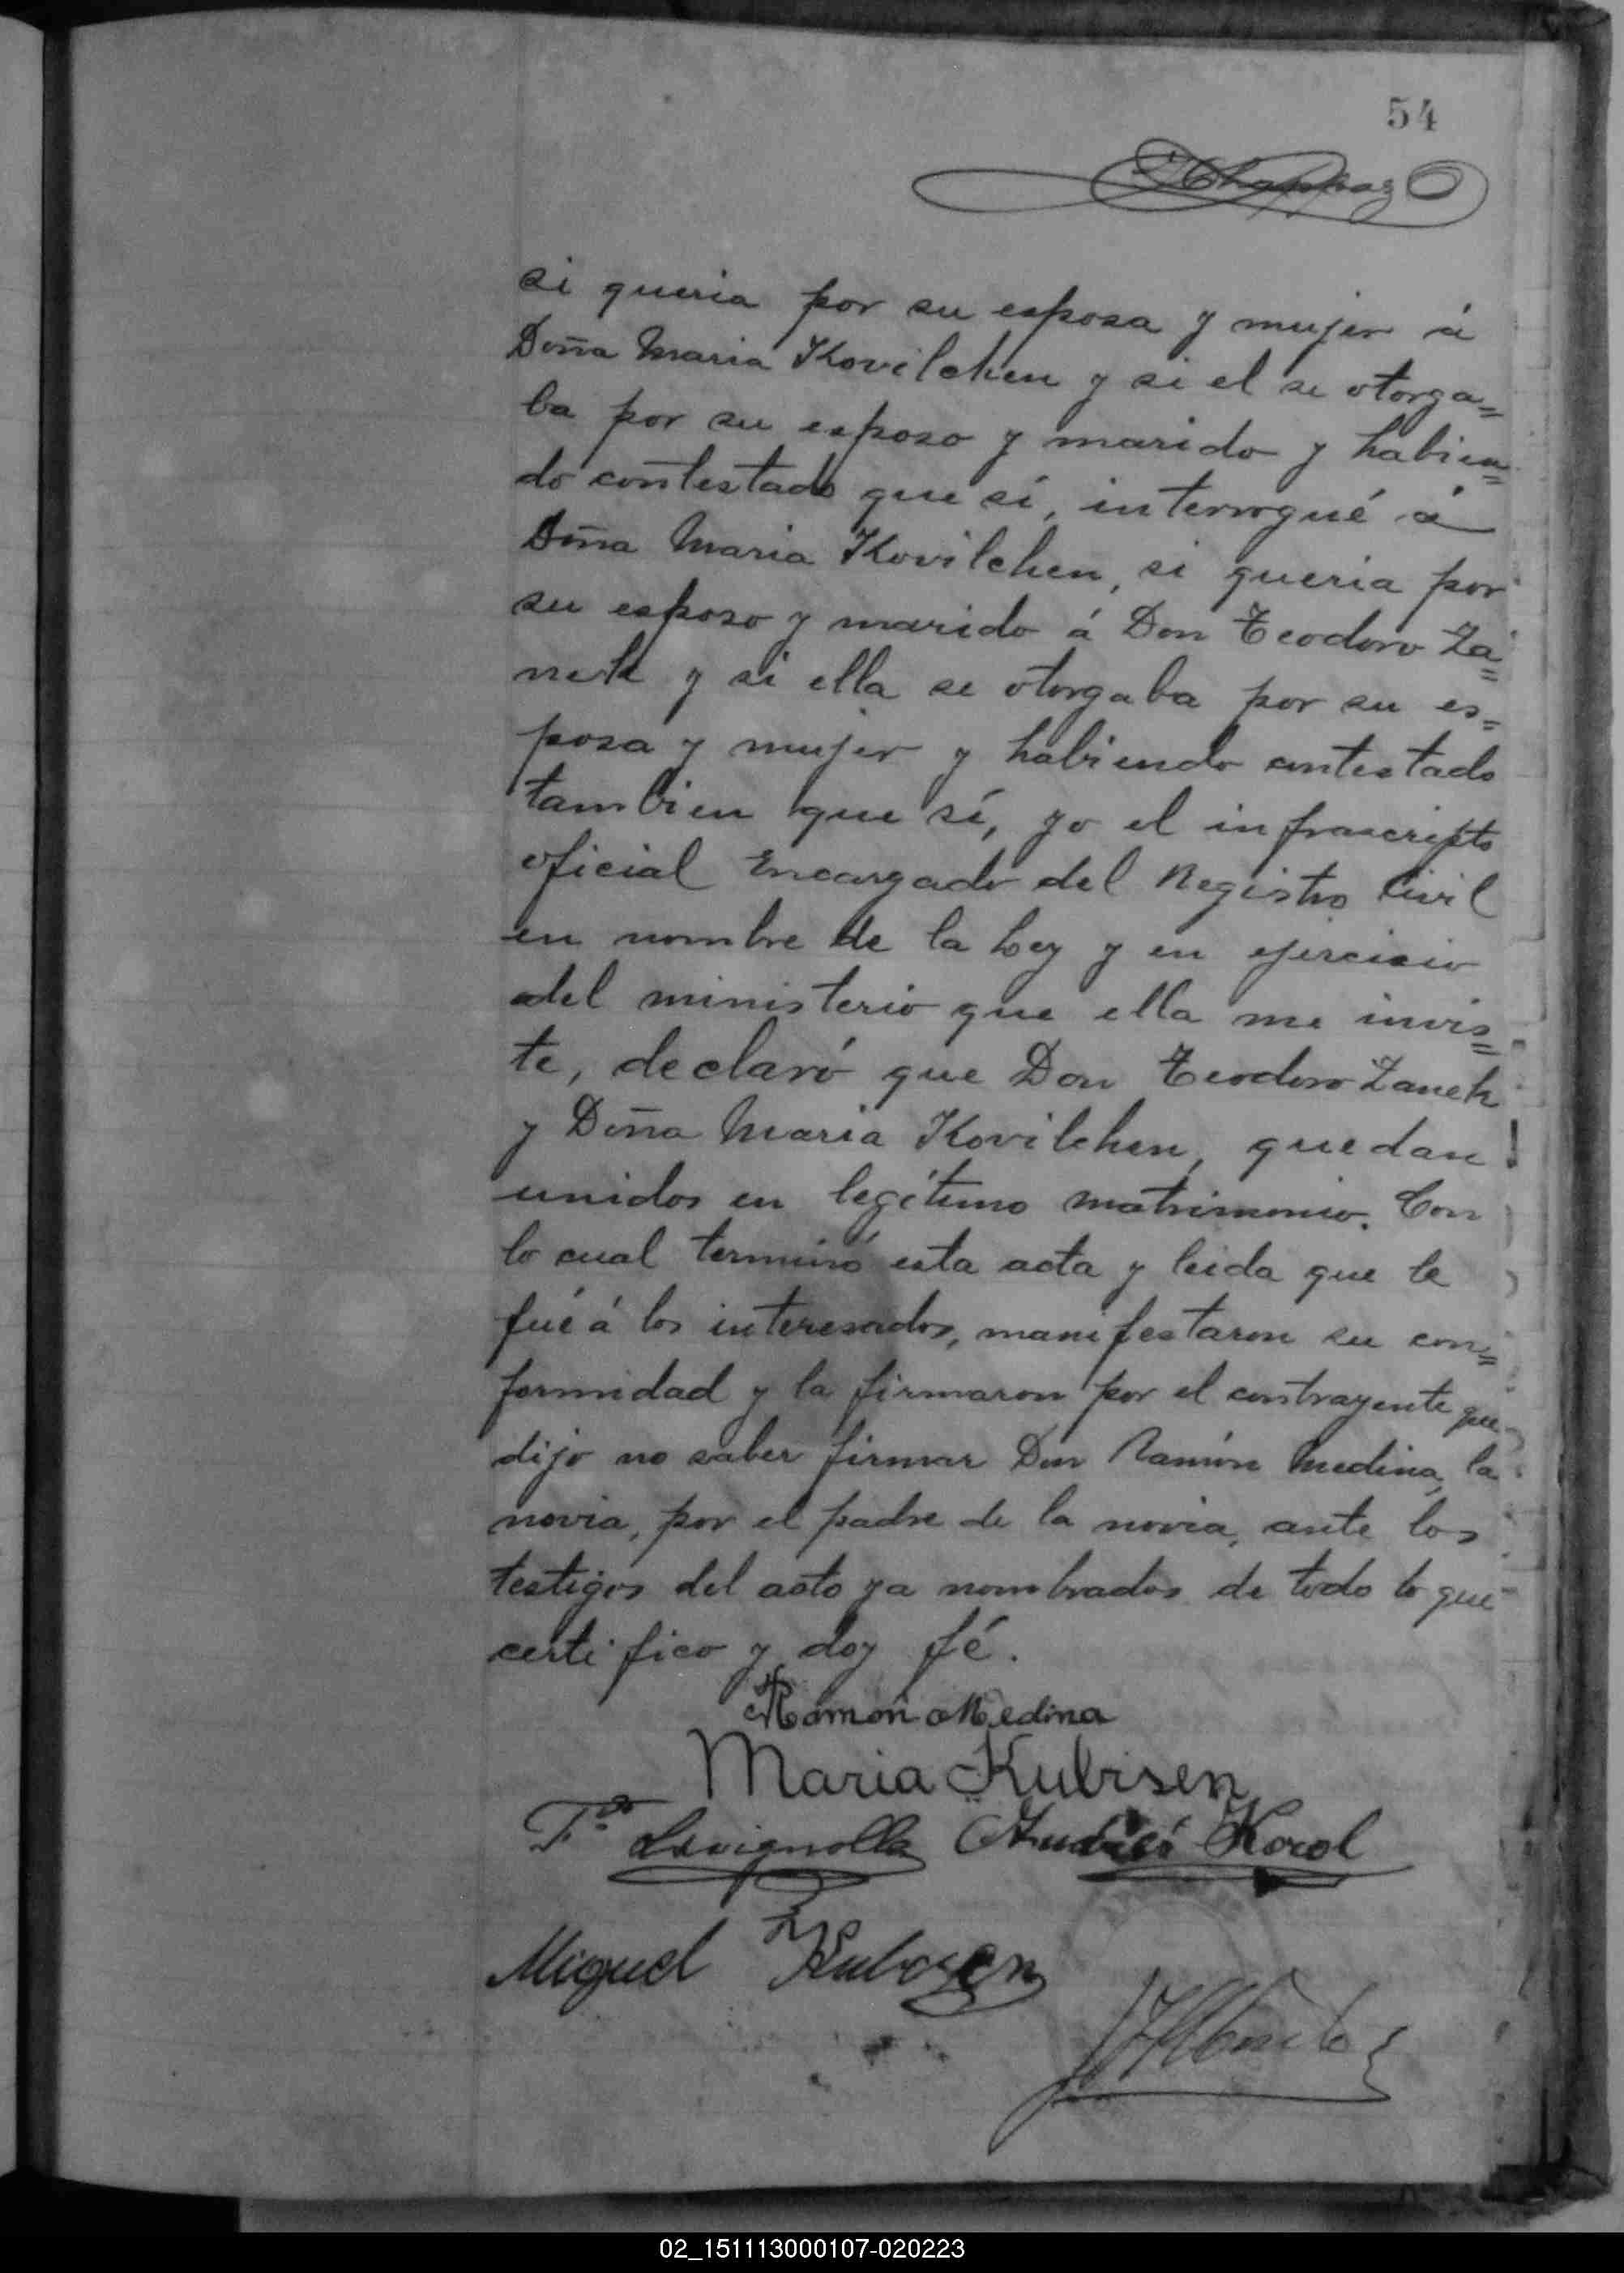 54
si queria por su esposa y mujer á
Doña Maria Kovilchen y si el se otorga=
ba por su esposo y marido y habien=
do contestado que sí, interrogué á
Doña Maria Kovilchen, si queria por
su esposo y marido á Don Teodoro Za=
nek y si ella se otorgaba por su es=
posa y mujer y habiendo contestado
tambien que sí, yo el infrascripto
oficial Encargado del Registro Civil
en nombre de la Ley y en ejercicio
del ministerio que ella me invis=
te, declaró que Don Teodoro Zanek
y Doña Maria Kovilchen, quedan
unidos en legítimo matrimonio. Con
lo cual terminó esta acta y leida que le
fué á los interesados, manifestaron su con=
formidad y la firmaron por el contrayente que
dijo no saber firmar Don Ramón Medina, la
novia, por el padre de la novia, ante los
testigos del acto ya nombrados de todo lo que
certifico y doy fé.
Ramon Medina
Maria Kubisen
Korol
Miguel
02_151113000107-020223